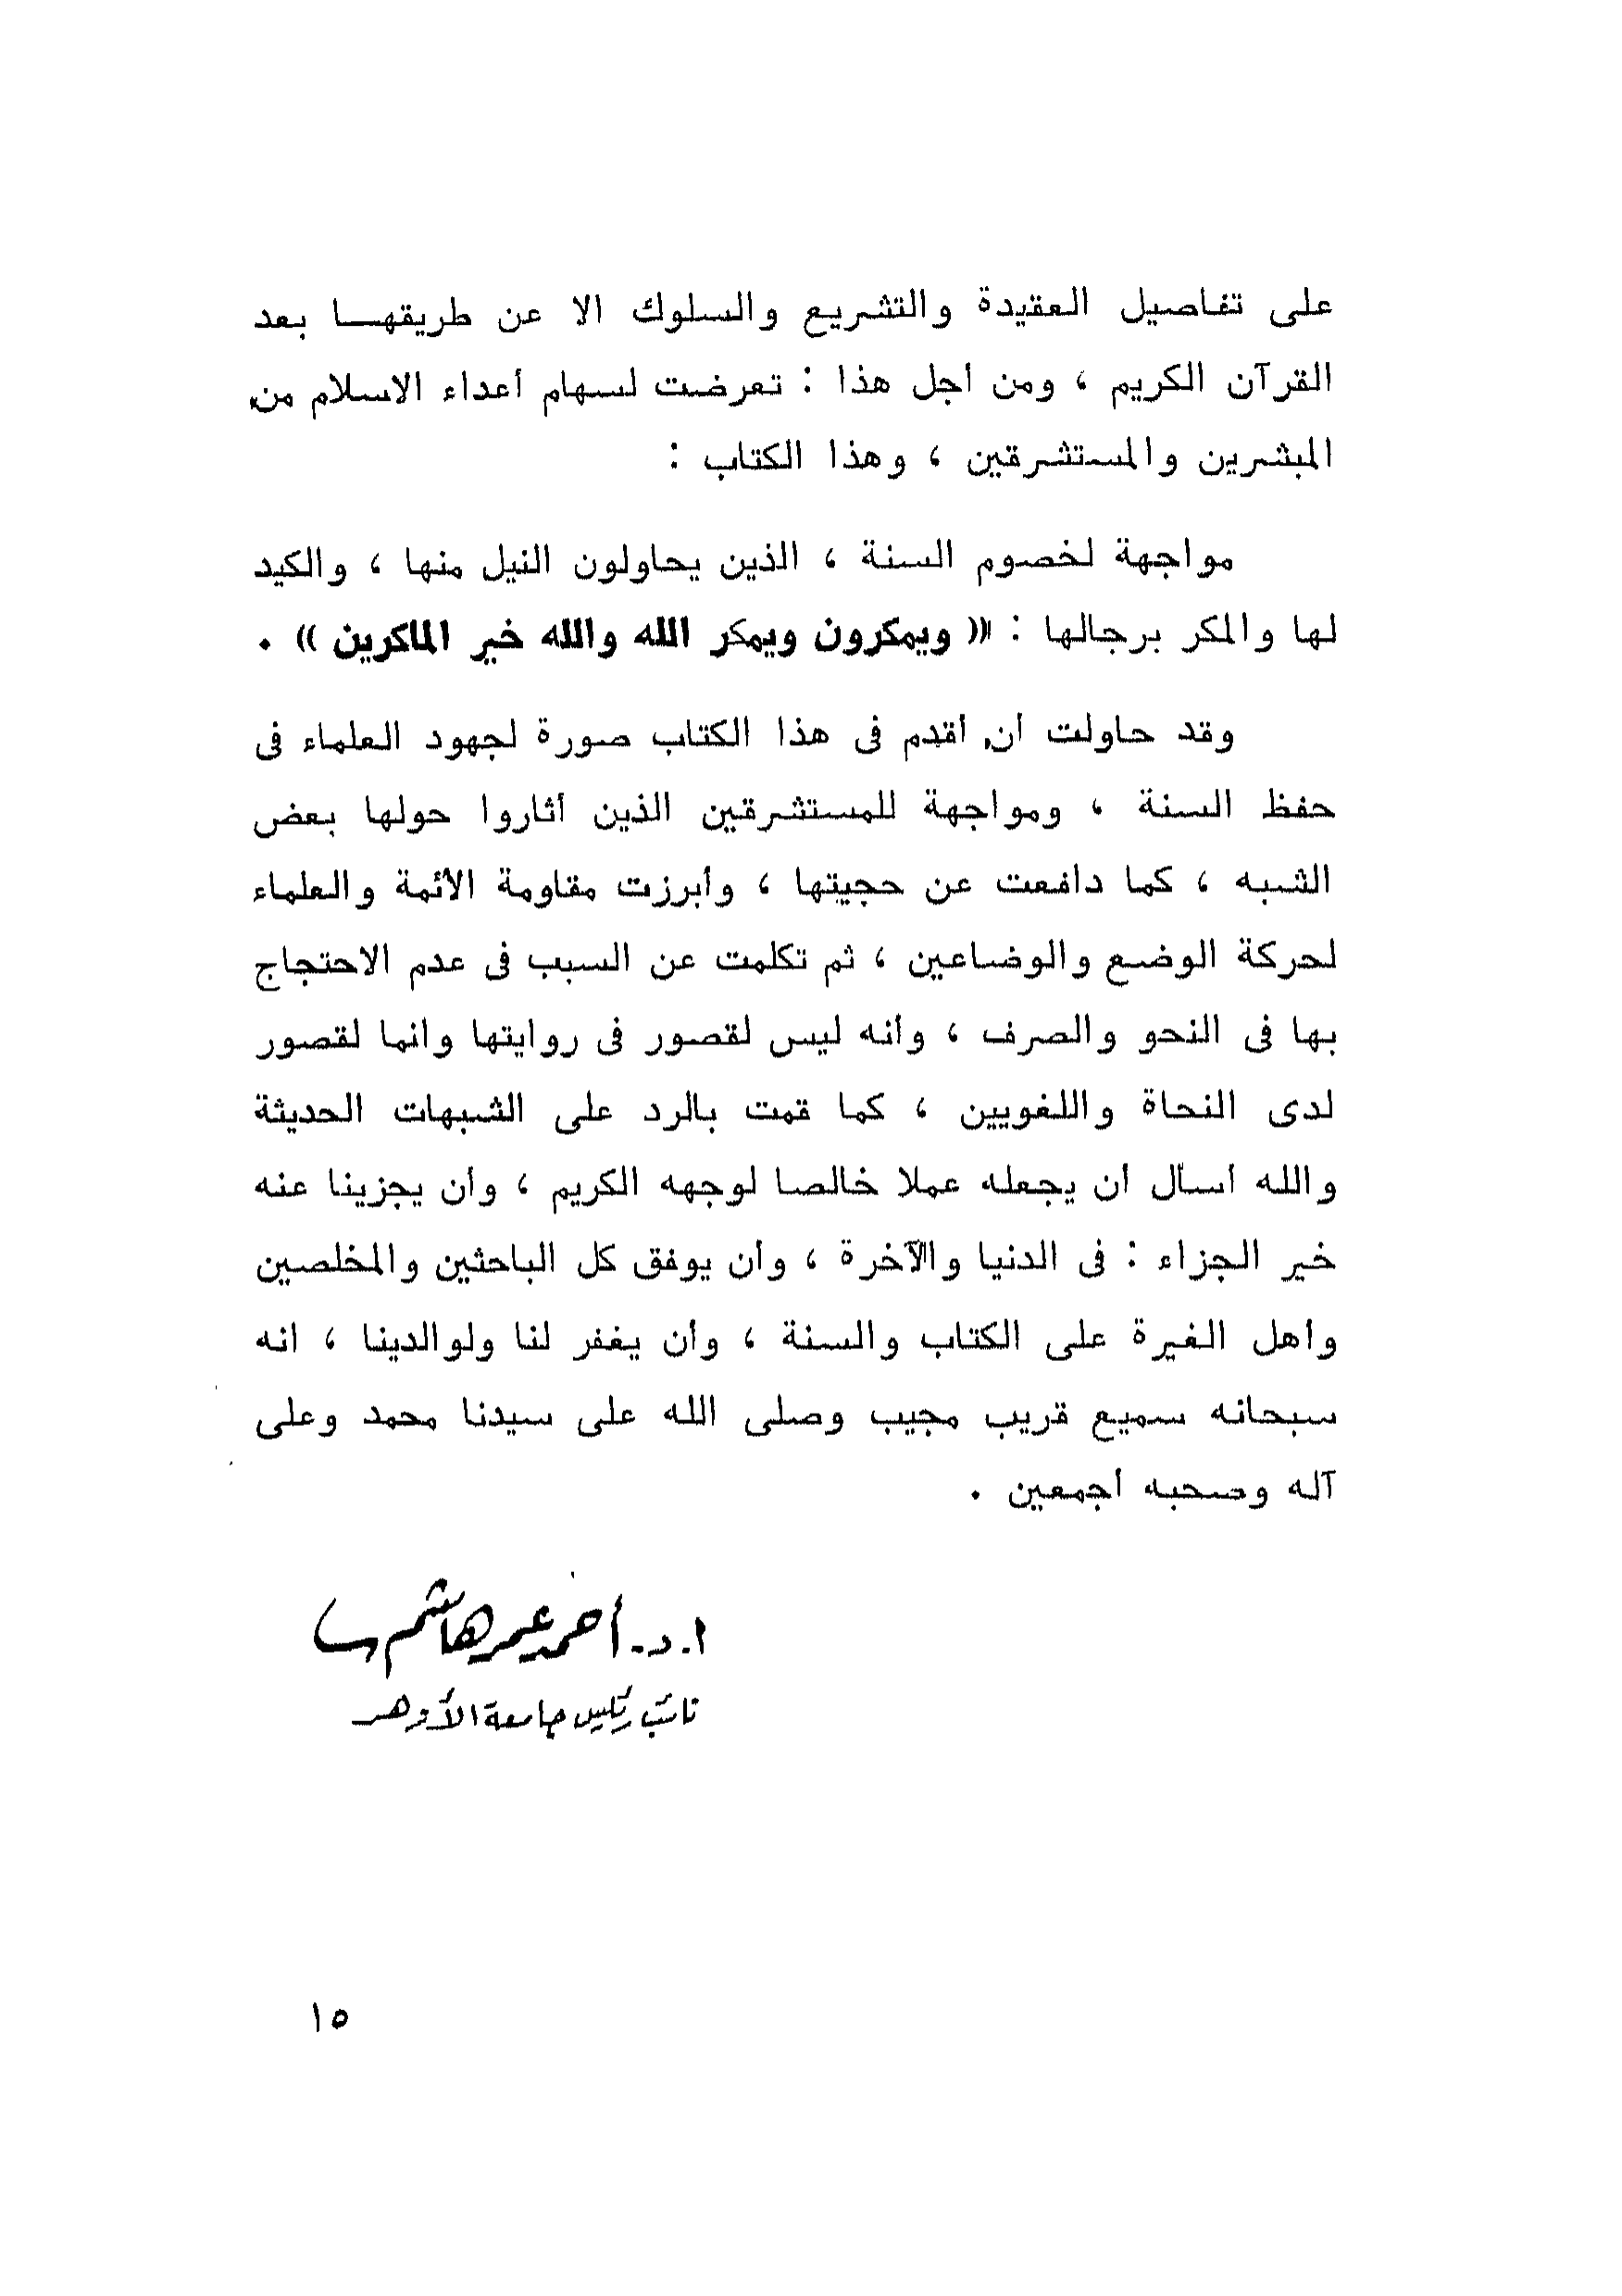 على تفاصيل العقيدة والتشريع والسلوك الا عن طريقهـا بعد
القرآن الكريم ، ومن أجل هذا : تعرضت لسهام أعداء الاسلام من
المبشرين والمستشرقين ، وهذا الكتاب :
مواجهة لخصوم السنة ، الذين يحاولون النيل منها ، والكيد
لها والمكر برجالها : « ويمكرون ويمكر الله والله خير الماكرين » .
وقد حاولت أن أقدم فى هذا الكتاب صورة لجهود العلماء فى
حفظ السنة ، ومواجهة للمستشرقين الذين أثاروا حولها بعض
الشبه ، كما دافعت عن حجيتها ، وأبرزت مقاومة الأئمة والعلماء
لحركة الوضع والوضاعين ، ثم تكلمت عن السبب فى عدم الاحتجاج
بها فى النحو والصرف ، وأنه ليس لقصور فى روايتها وانما لقصور
لدى النحاة واللغويين ، كما قمت بالرد على الشبهات الحديثة
والله أسأل أن يجعله عملا خالصا لوجهه الكريم ، وأن يجزينا عنه
خير الجزاء : فى الدنيا والآخرة ، وأن يوفق كل الباحثين والمخلصين
وأهل الغيرة على الكتاب والسنة ، وأن يغفر لنا ولوالدينا ، انه
سبحانه سميع قريب مجيب وصلى الله على سيدنا محمد وعلى
آله وصحبه أجمعين .
ا.د. أحمد عمر هاشم
نائب رئيس جامعة الأزهر
١٥